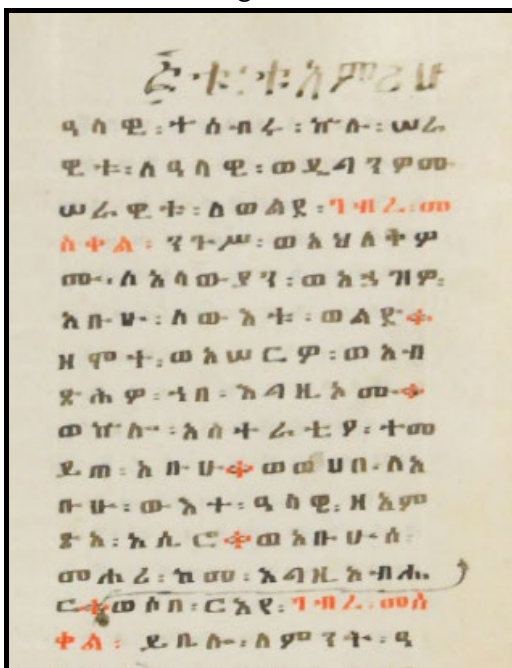 ዓላዊ፡ተሰብሩ፡ኵሉ፡ሠራ
ዊቱ፡ለዓላዊ፡ወዴገንዎሙ
ሠራዊቱ፡ለወልደ፡ገብረ፡መ
ስቀል፡ንጉሥ፡ወአህለቅዎ
ሙ፡ለአላውያን፡ወአኀዝዎ፡
አቡሁ፡ለውእቱ፡ወልድ።
ዘሞተ፡ወአሠርዎ፡ወአብ
ጽሕዎ፡ኀበ፡እግዚኦሙ።
ወኵሎ፡አስተራትዖ፡ተመ
ይጠ፡አቡሁ።ወወሀበ፡ለአ
ቡሁ፡ውእተ፡ዓላዊ፡ዘአም
ጽአ፡አሲሮ።ወአቡሁሰ፡
መሐሪ፡ከመ፡እግዚአብሔ
ር።ወሶበ፡ርእየ፡ገብረ፡መስ
ቀል፡ይቤሎ፡ለምንት፡ዓ